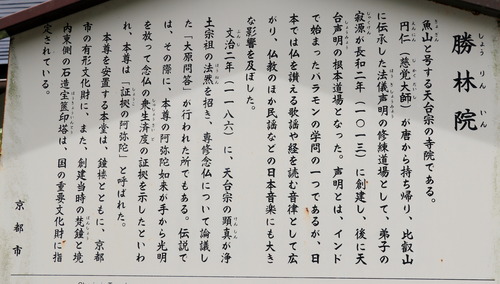 勝林院
しょうりんいん
魚山と号する天台宗の寺院である。
円仁（慈覚大師）が唐から持ち帰り、比叡山
に伝承した法儀声明の修練道場として、弟子の
寂源が長和二年（一〇一三）に創建し、後に天
台声明の根本道場となった。声明とは、インド
で始まったバラモンの学問の一つであるが、日
本では仏を讃える歌謡や経を読む音律として広
がり、仏教のほか民謡などの日本音楽にも大き
な影響を及ぼした。
文治二年（一一八六）に、天台宗の顕真が浄
土宗祖の法然を招き、専修念仏について論議し
た「大原問答」が行われた所でもある。伝説で
は、その際に、本尊の阿弥陀如来が手から光明
を放って念仏の衆生済度の証拠を示したといわ
れ、本尊は「証拠の阿弥陀」と呼ばれた。
本尊を安置する本堂は、鐘楼とともに、京都
市の有形文化財に、また、創建当時の梵鐘と境
内東側の石造宝篋印塔は、国の重要文化財に指
定されている。
京都市